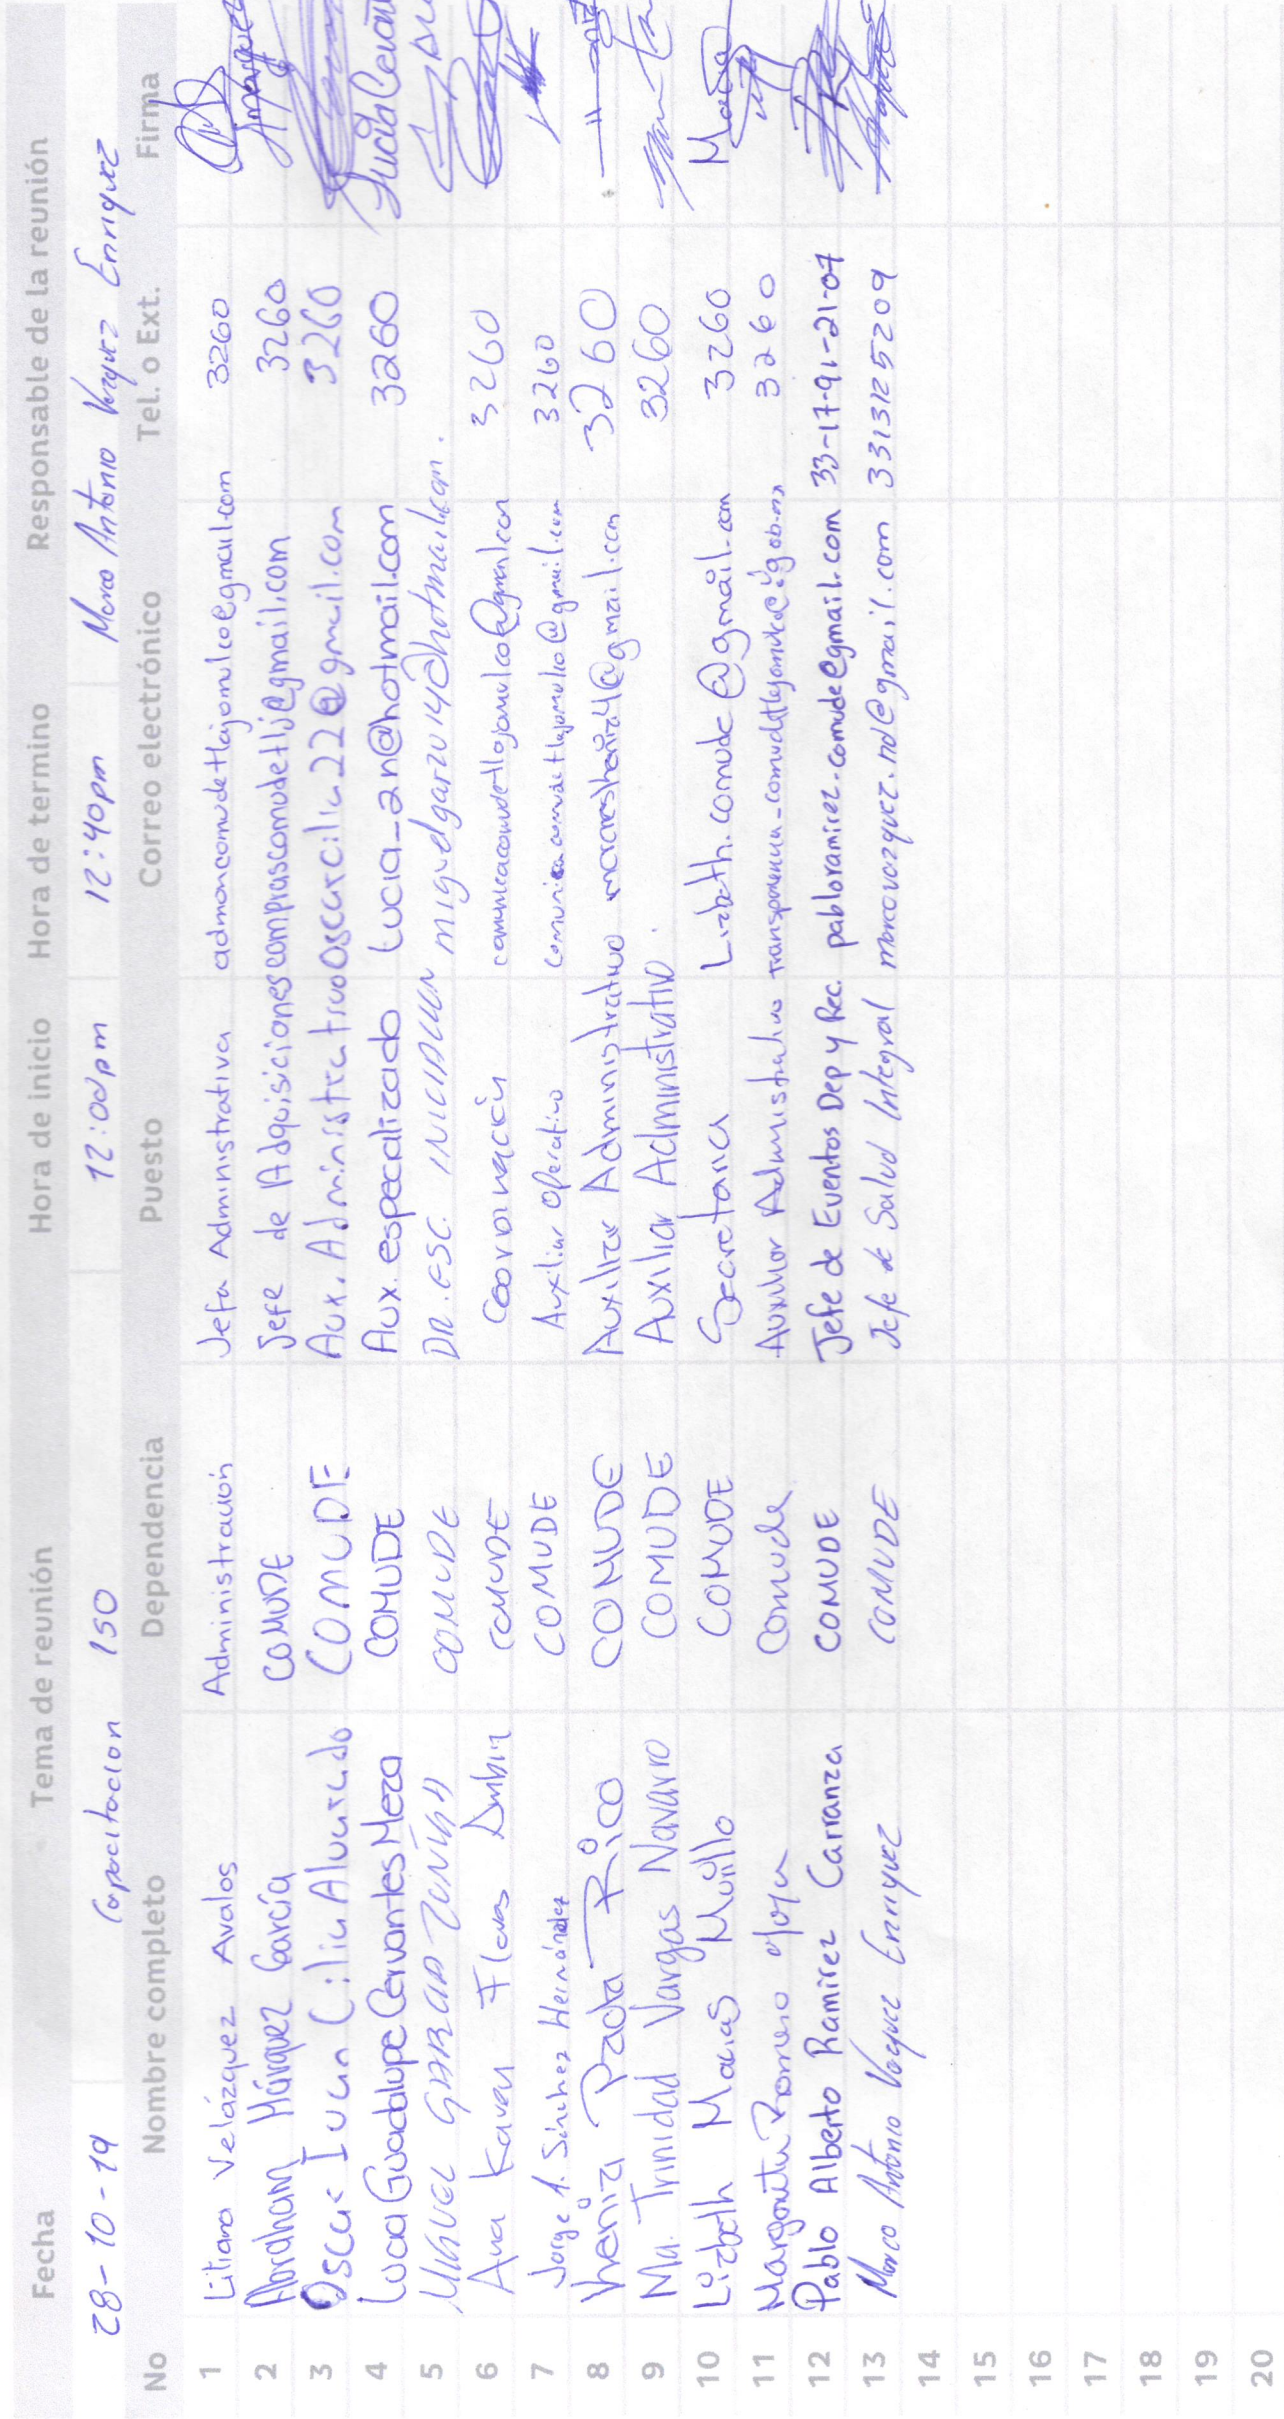 Fecha Tema de reunión Hora de inicio Hora de termino Responsable de la reunión
28-10-19 Capacitacion ISO 12:00pm 12:40pm Marco Antonio Vazquez Enriquez
No Nombre completo Dependencia Puesto Correo electrónico Tel. o Ext. Firma
1 Liliana Velázquez Avalos Administración Jefa Administrativa admoncomudetlajomulco@gmail.com 3260
2 Abraham Márquez García COMUDE Jefe de Adquisiciones comprascomudetlj@gmail.com 3260 Amarquez
3 Oscar Ivan Cilia Alvarado COMUDE Aux. Administrativo Oscarcilia22@gmail.com 3260
4 Lucia Guadalupe Cervantes Meza COMUDE Aux. especializado Lucia_2n@hotmail.com 3260
5 MIGUEL GARCIA ZUÑIGA COMUDE DR. ESC. INICIACION miguelgarzu14@hotmail.com.
6 Ana Karen Flores COMUDE Coordinación 3260
7 Jorge A. Sánchez Hernández COMUDE Auxiliar Operativo 3260
8 Iheniza Pada Rico COMUDE Auxiliar Administrativo 3260
9 Ma. Trinidad Vargas Navarro COMUDE Auxiliar Administrativo. 3260
10 Lizbeth Macias Murillo COMUDE Secretaria Lizbeth.comude@gmail.com 3260
11 Margarita Romero Comude Auxiliar Administrativo 3260
12 Pablo Alberto Ramirez Carranza COMUDE Jefe de Eventos Dep y Rec. pabloramirez.comude@gmail.com 33-17-91-21-07
13 Marco Antonio Vazquez Enriquez COMUDE Jefe de Salud Integral marcovazquez.nd@gmail.com 3313125209
14
15
16
17
18
19
20